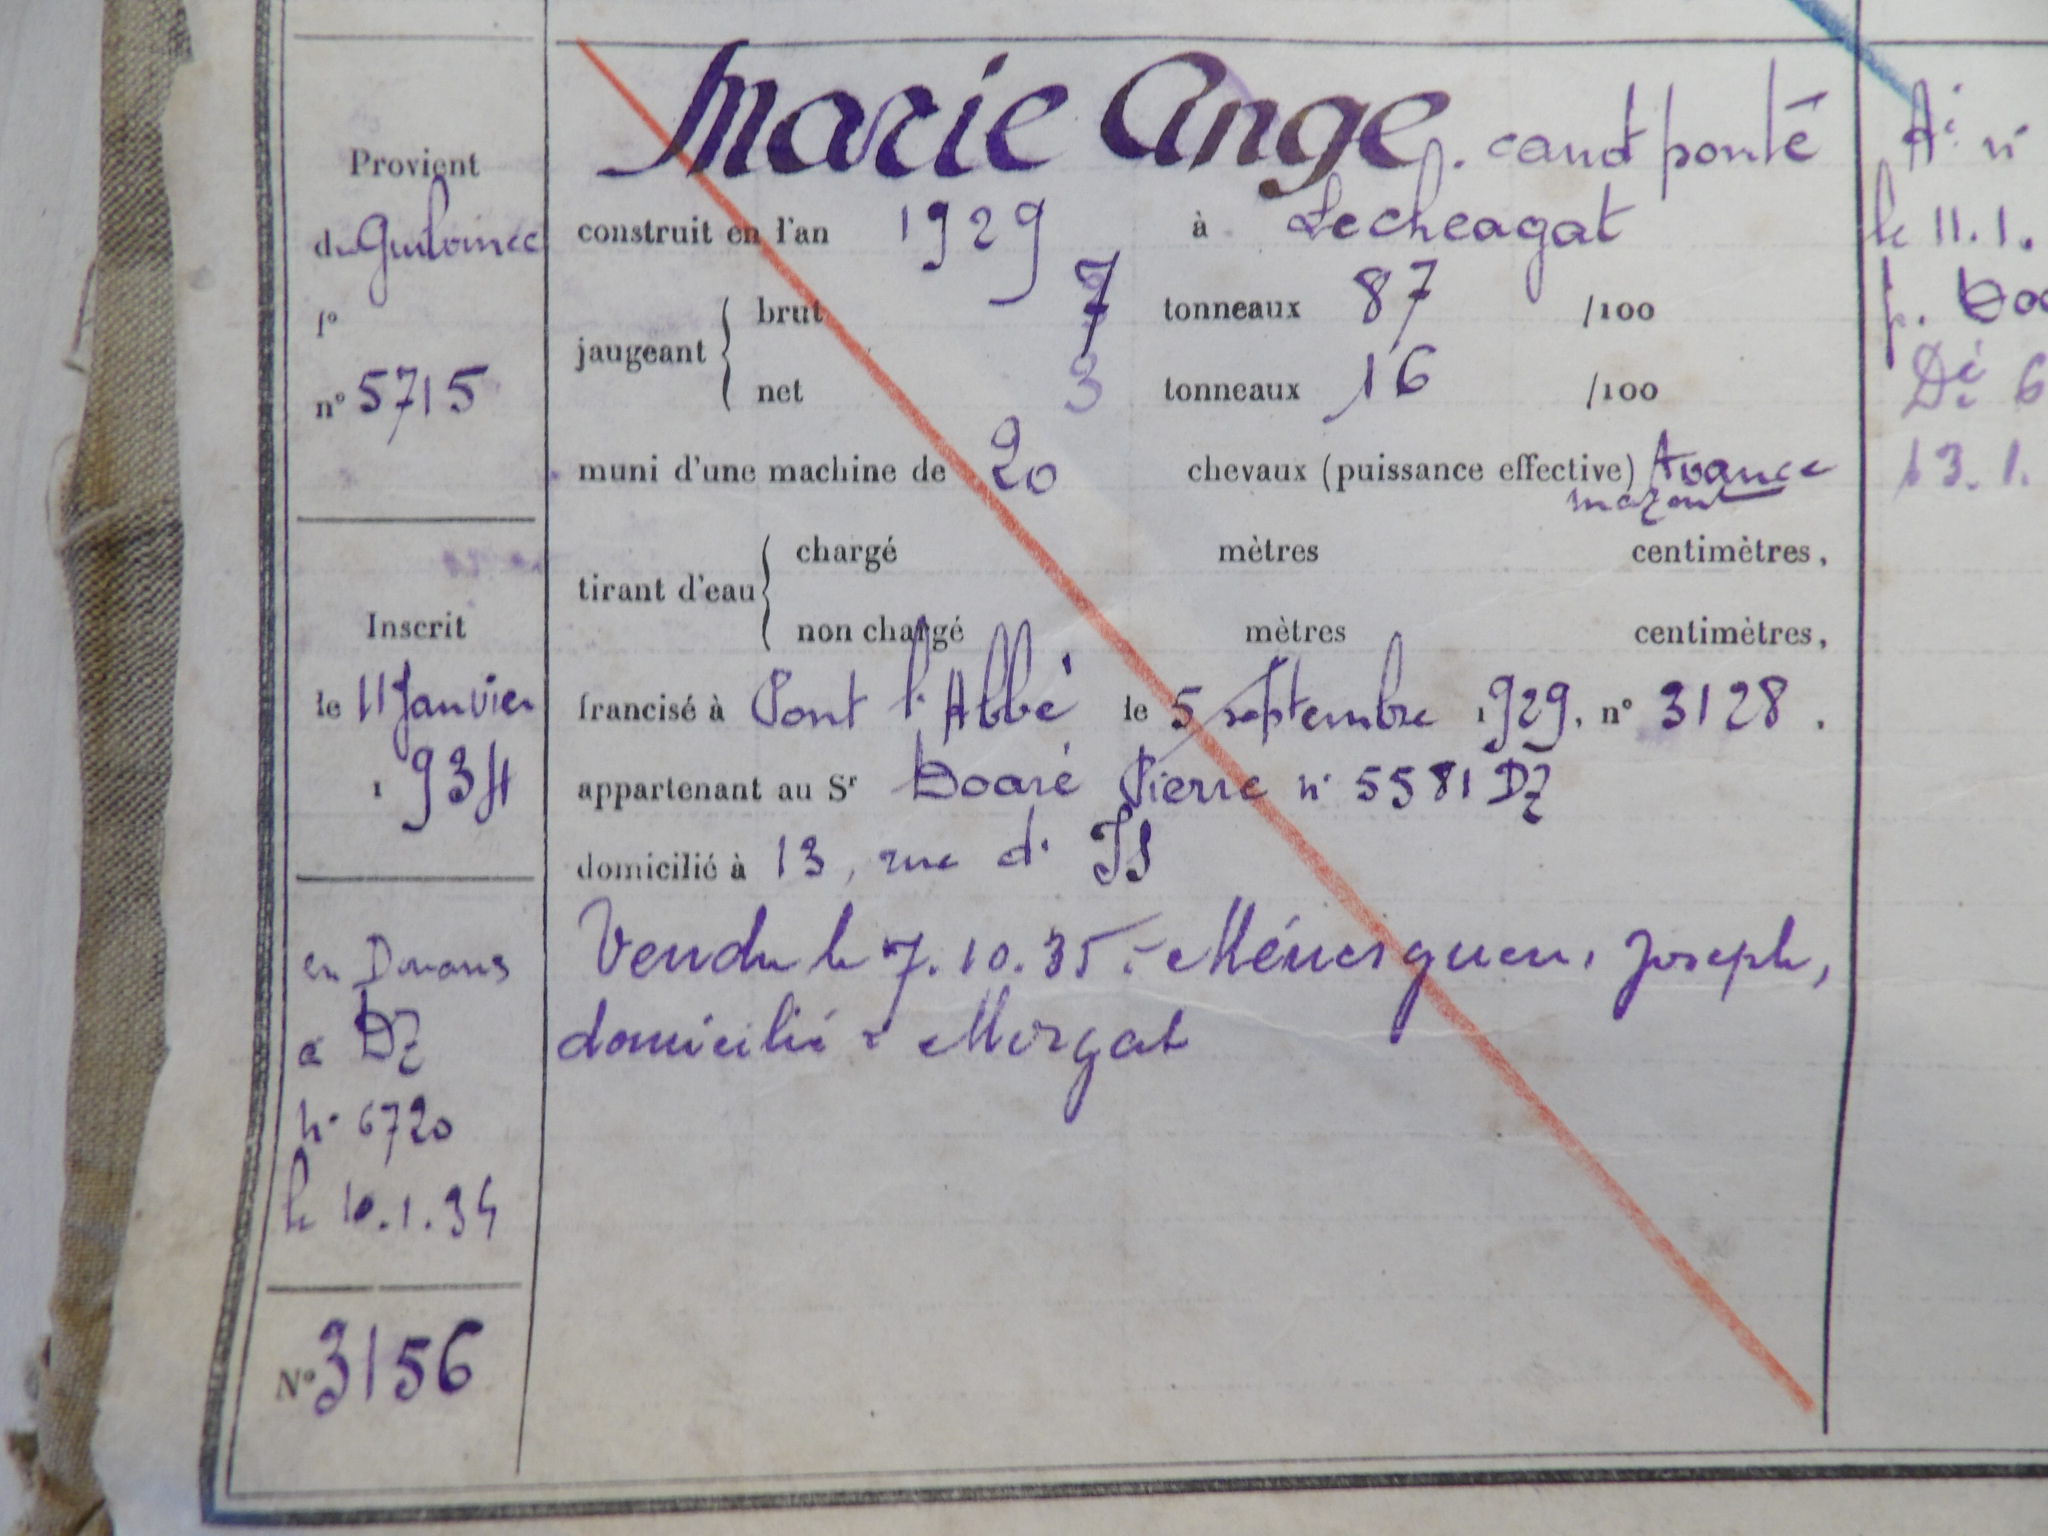 Provient
du Guilvinec
f°
n° 5715
Inscrit
le 11 Janvier
1934
en Douane
à DZ
n° 6720
le 10.1.34
N° 3156
Marie Ange. canot ponté
construit en l'an 1929 à Lecheagat
jaugeant { brut 7 tonneaux 87 /100
net 3 tonneaux 16 /100
muni d'une machine de 20 chevaux (puissance effective) Avance
mazout
tirant d'eau { chargé mètres centimètres,
non chargé mètres centimètres,
francisé à Pont l'Abbé le 5 septembre 1929, n° 3128.
appartenant au Sr Doaré Pierre n° 5581 DZ
domicilié à 13, rue d' IS
Vendu le 7.10.35 - Ménesguen, Joseph,
domicilié à Morgat
At n°
le 11.1.
p. Doa
Dé 6
13.1.